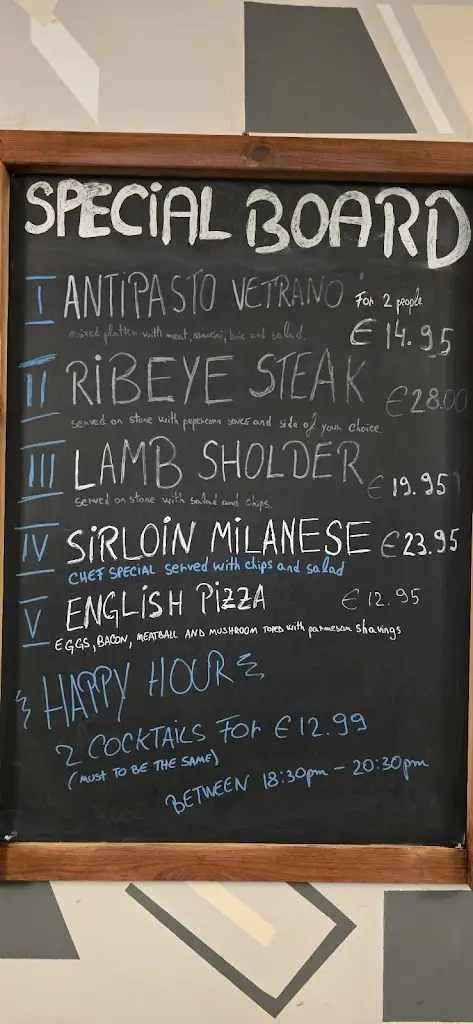 SPECIAL BOARD
I ANTIPASTO VETRANO For 2 people
mixed platter with meat, arancini, brie and salad. € 14.95
II RIBEYE STEAK €28.00
served on stone with peppercorn sauce and side of your choice.
III LAMB SHOLDER € 19.95
served on stone with salad and chips.
IV SIRLOIN MILANESE €23.95
CHEF SPECIAL served with chips and salad
V ENGLISH PIZZA € 12.95
EGGS, BACON, MEATBALL AND MUSHROOM TOPED with parmesan shavings
HAPPY HOUR
2 COCKTAILS FOR €12.99
(MUST TO BE THE SAME)
BETWEEN 18:30pm - 20:30pm